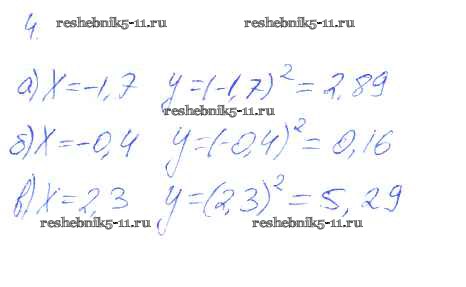 reshebnik5-11.ru reshebnik5-11.ru
4.
а) x = -1,7 y = (-1,7)² = 2,89
reshebnik5-11.ru
б) x = -0,4 y = (-0,4)² = 0,16
в) x = 2,3 y = (2,3)² = 5,29
reshebnik5-11.ru reshebnik5-11.ru